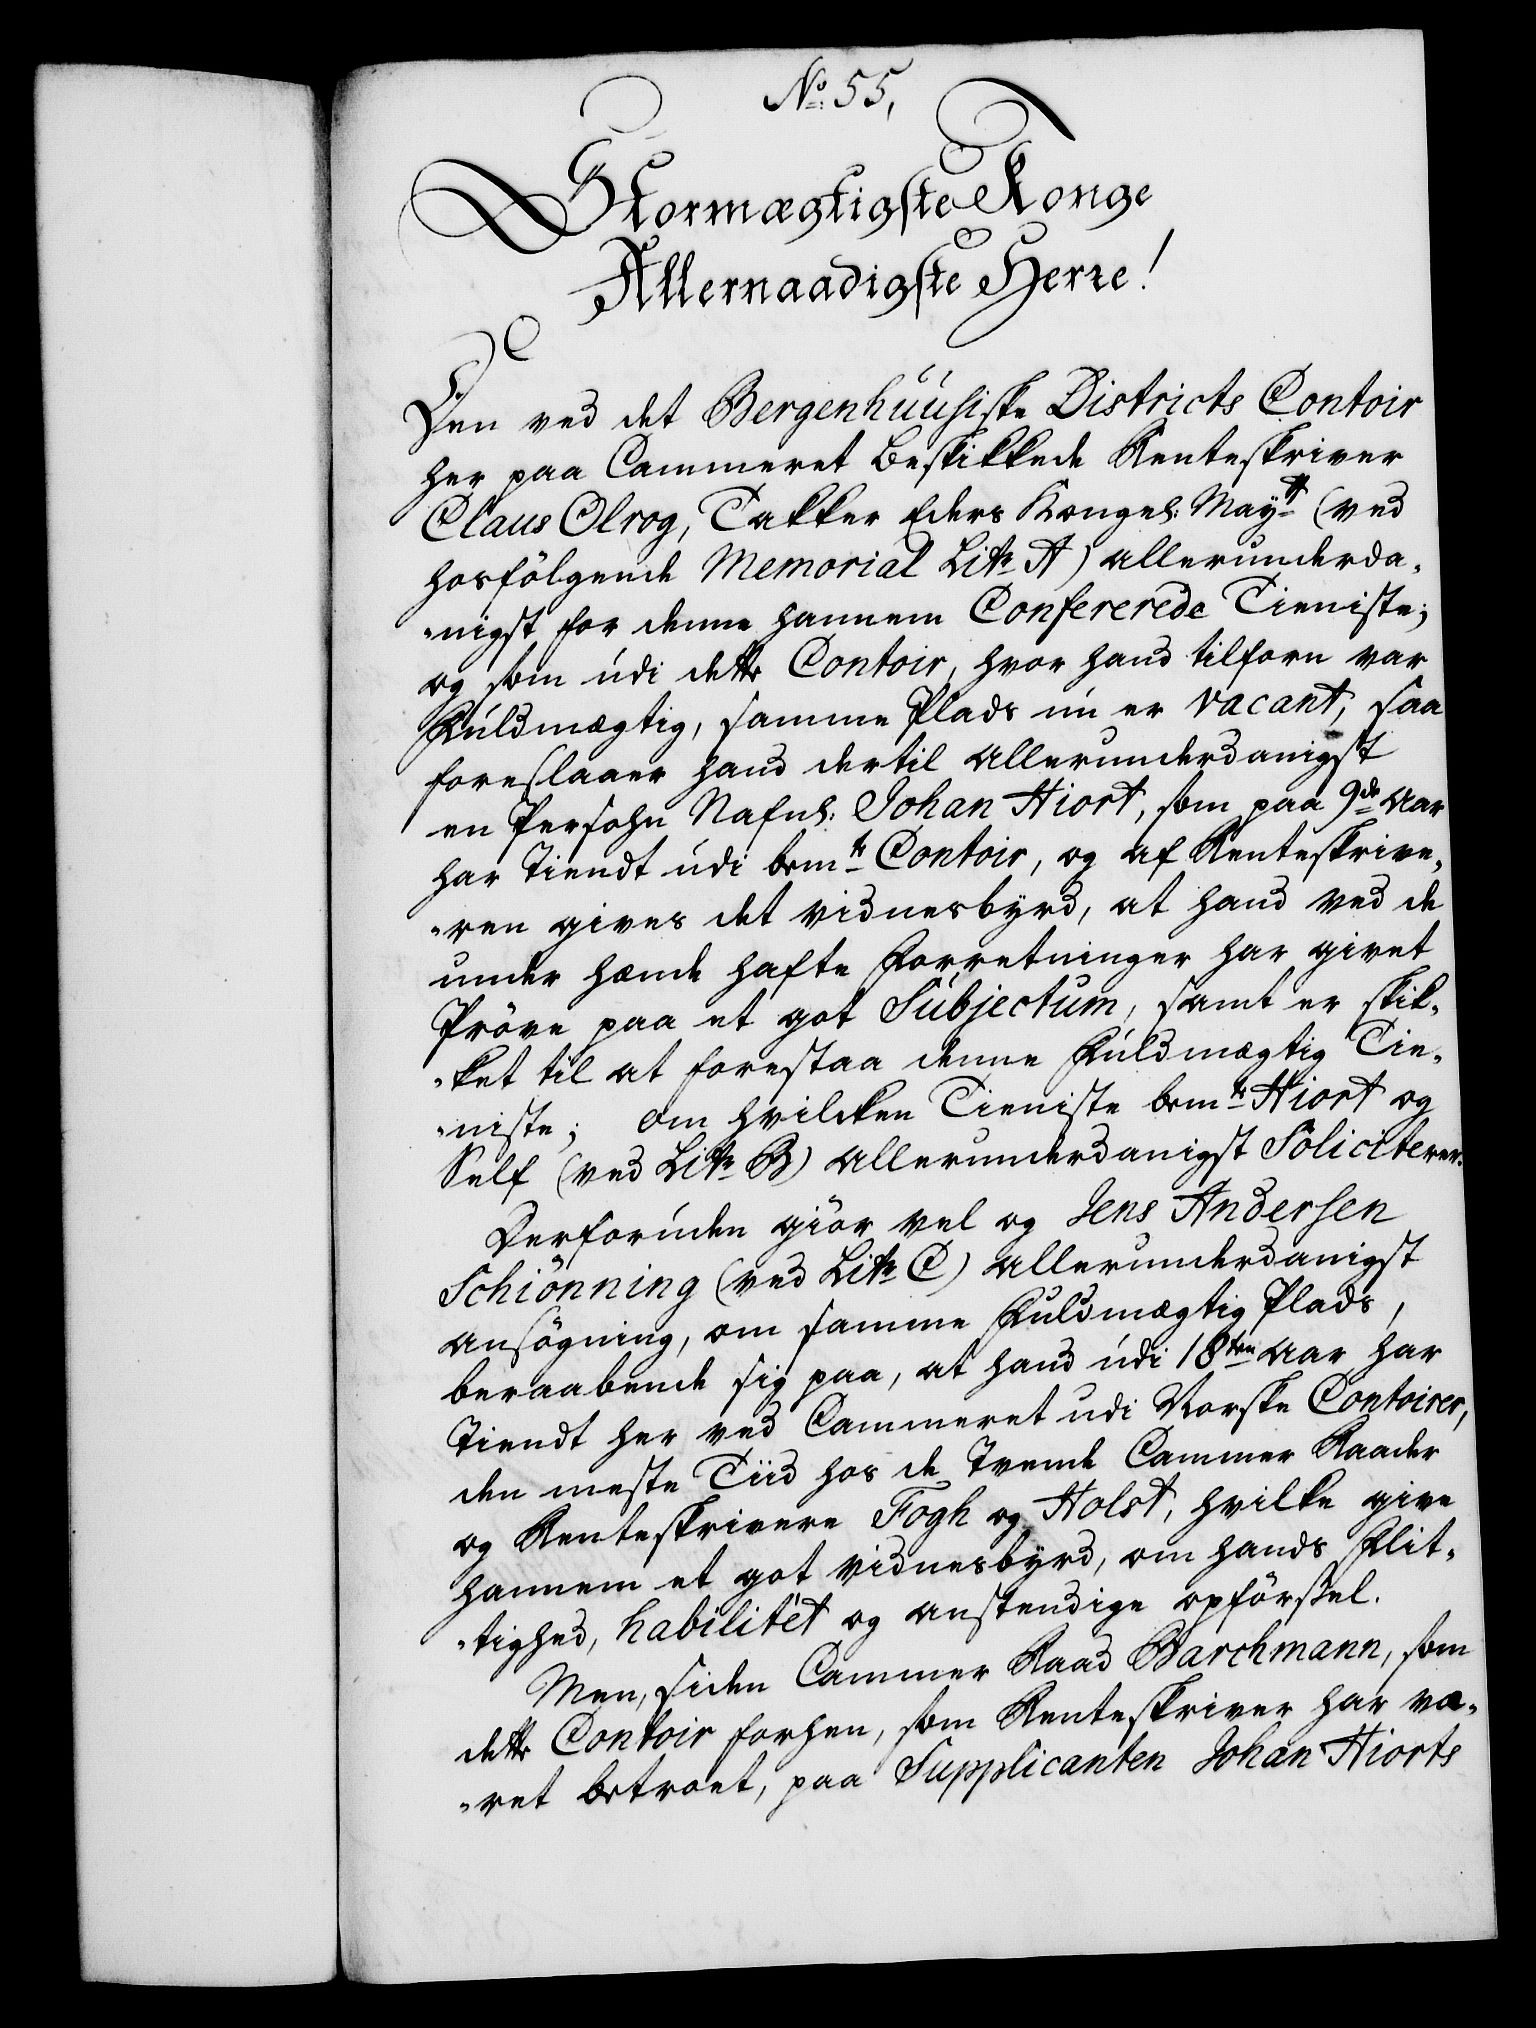 No: 55,
Stormægtigste Konge
Allernaadigste Herre!
Den ved det Bergenhuusiske Districts Contoir
her paa Cammeret beskikkede Renteskriver
Claus Olrog, Takker Eders Kongel: Mayt (ved
hosfölgende Memorial Litr A) allerunderda-
-nigst for denne hannem Confererede Tieniste;
og som udi dette Contoir, hvor hand tilforn var
Fuldmægtig, samme Plads nu er vacant, saa
foreslaaer hand dertil allerunderdanigst
en Persohn Nafnl: Johan Hiort, som paa 9de Aar
har Tiendt udi bemte Contoir, og af Renteskrive-
-ren gives det vidnesbyrd, at hand ved de
under hænde hafte Forretninger har givet
Pröve paa et got Subjectum, samt er skik-
-ket til at forestaa denne Fuldmægtig Tie-
-niste; om hvilcken Tieniste bemte Hiort og
Self (ved Litr B) allerunderdanigst Soliciterer.
Derforuden giör vel og Jens Andersen
Schiönning (ved Litr C) allerunderdanigst
ansögning, om samme Fuldmægtig Plads,
beraabende sig paa, at hand udi 18ten Aar har
Tiendt her ved Cammeret udi Norske Contoirer,
den meste Tiid hos de Tvende Cammer Raader
og Renteskrivere Fogh og Holst, hvilke give
hannem et got vidnesbyrd, om hands Flit-
-tighed, habilitét og anstendige opförssel.
Men, siden Cammer Raad Barchmann, som
dette Contoir forhen, som Renteskriver har væ-
-ret betroet, paa Supplicanten Johan Hiorts